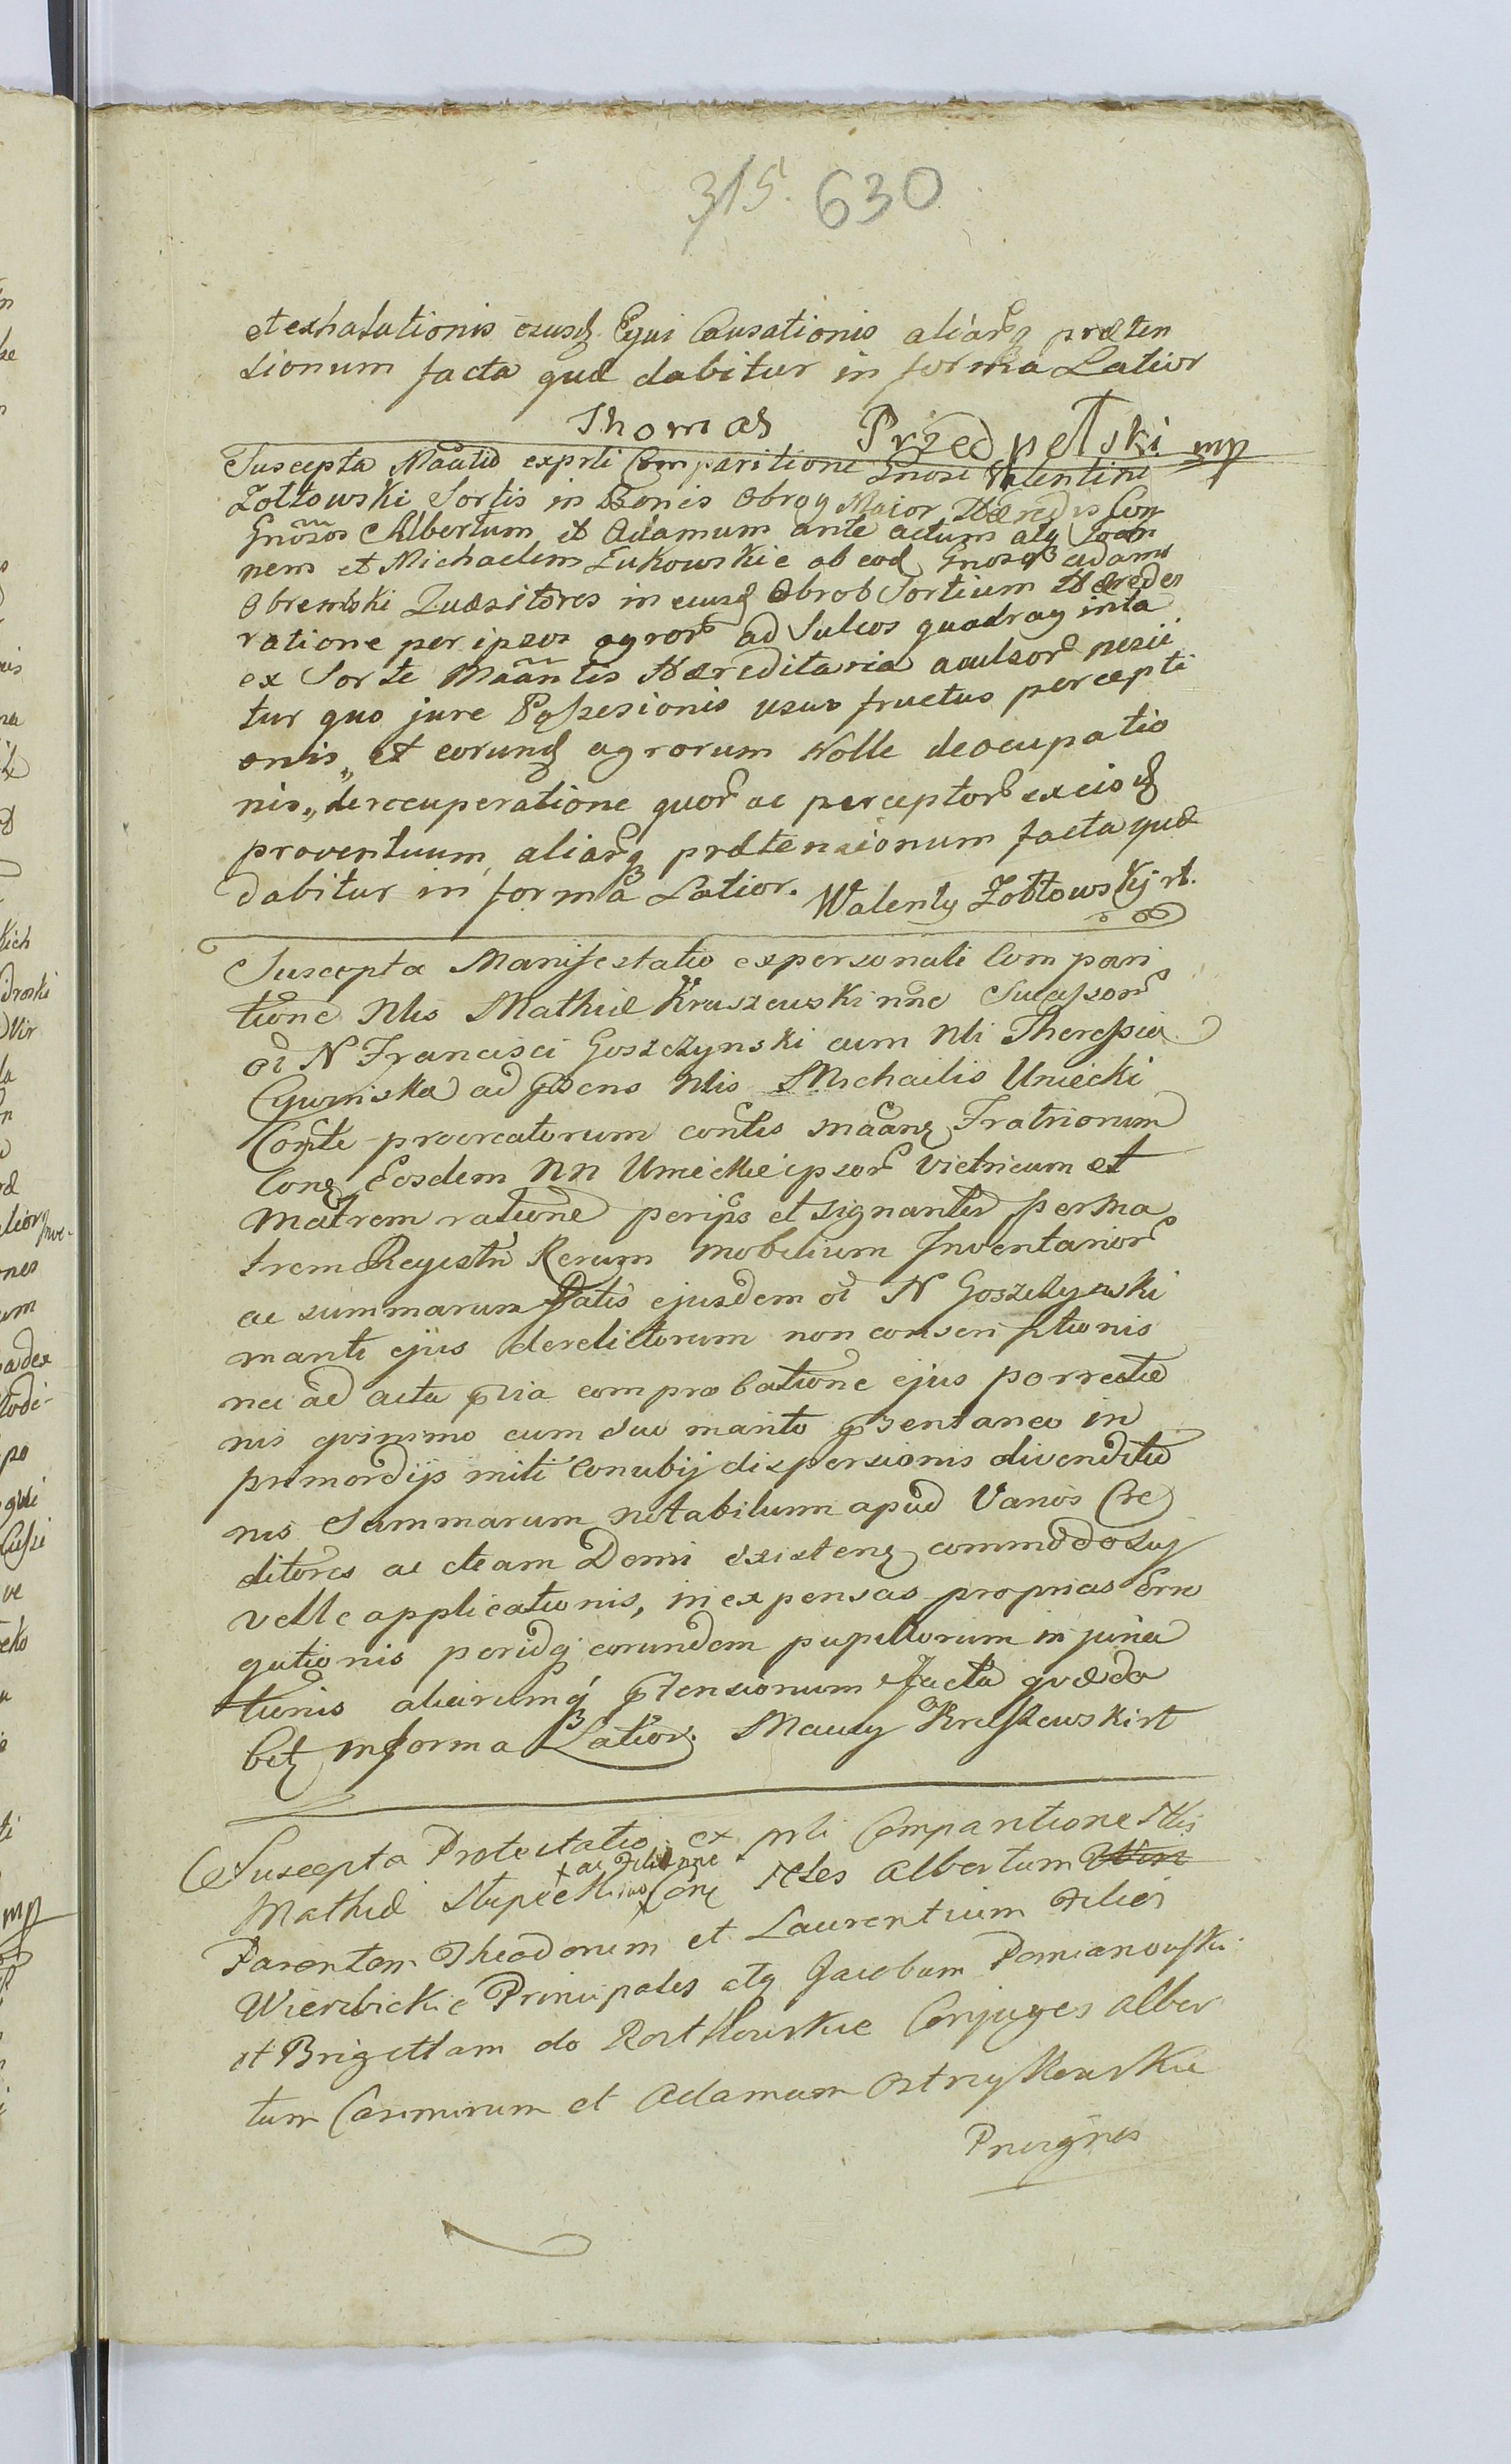 315. 630
et exhalutionis ejusd Equi Causationis aliarq præten
sionum facta quæ dabitur in forma Latior
Thomas Przedpełski mp
Suscepta Maãtio exprli Comparitione Gnosi Valentini
Zołtowski Sortis in Bonis Obrąg Maior Hæredis Con
Gnõsos Albertum et Adamum ante actum atq Joan
nem et Michaelem Zukowskie ab eod Gnoso Adamo
Obrembski Quæsitores in eiusd Obrob Sortium Hæredes
ratione per ipsos agror ad Sulcos quadraginta
ex Sorte Maãntis Hæreditaria avulsor nesii
tur quo jure Possesionis usus fructus percepti
onis, et eorund agrorum Nolle deocupatio
nis, de recuperatione quor ac perceptor ex eisd
proventuum, aliarq prætensionum facta quæ
dabitur in forma Latior. Walenty Zołtowskj rt.
Suscepta Manifestatio ex personali Compari
tione Nlis Mathiæ Kraszewski nne Sucessor
oi N Francisci Goszczynski cum Nli Theressia
Cywinska ad præsens Nlis Michailis Uniecki
Conte procreatorum contis maanq Fratrionum
Conq Eosdem NN Unieckie ipsor Vietricum et
Matrem ratione perips et signanter per Ma
trem Regestri Rerum Mobilium Inventarior
ac summarum Patis ejusdem oi N Goszczynski
mariti ejus derelictorum non conscriptionis
nec ad acta pria comprobatione ejus porrectio
nis qvinimo cum suo marito præsentaneo in
primordijs initi Conubij dispersionis divenditio
nis Summarum notabilium apud Varios Cre
ditores ac etiam Domi existenq commodo suo
velle applicationis, in expensas proprias Erro
gationis peridq eorundem pupillorum injuria
tionis aliarumq prætensionum facta qvæ da
bitz in forma Latior. Maciey Kraszewski rt
Suscepta Protestatio ex prli Comparitione Nlis
Mathiæ Stupecki ac Filio nne Conq Nles Albertum
Parentem Theodorum et Laurentium Filios
Wierzbickie Principales atq Jacobum Damianowski
et Brigettam de Rostkowskie Conjuges Alber
tum Casimirum et Adamum Ostrzykowskie